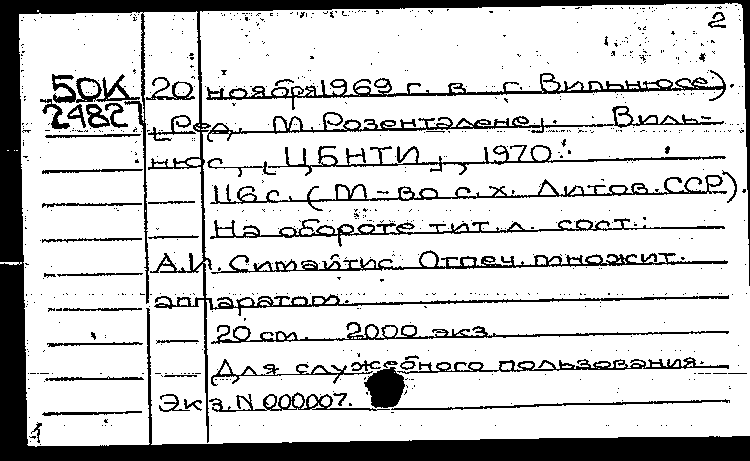 2
50К 20 ноября 1969 г. в г. Вильнюсе).
24827 [Ред. М. Розенталене]. Виль-
нюс, [ЦБНТИ], 1970.
116 с. (М-во с.х. Литов.ССР).
На обороте тит.л. сост.:
А.И. Симайтис. Отпеч. множит.
аппаратом.
20 см. 2000 экз.
Для служебного пользования.
Экз. N 000007.